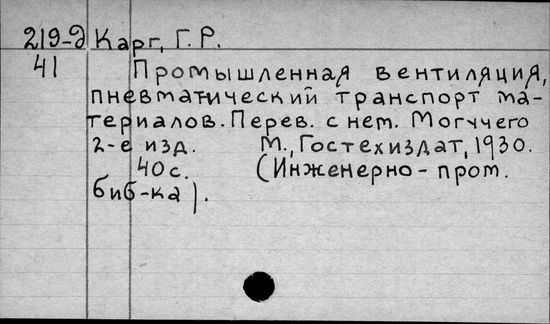 219-д Карг, Г. Р.
41 Промышленная вентиляция,
пневматический транспорт ма-
териалов. Перев. с нем. Могучего
2-е изд. М., Гостехиздат, 1930.
40 с. (Инженерно-пром.
биб-ка).